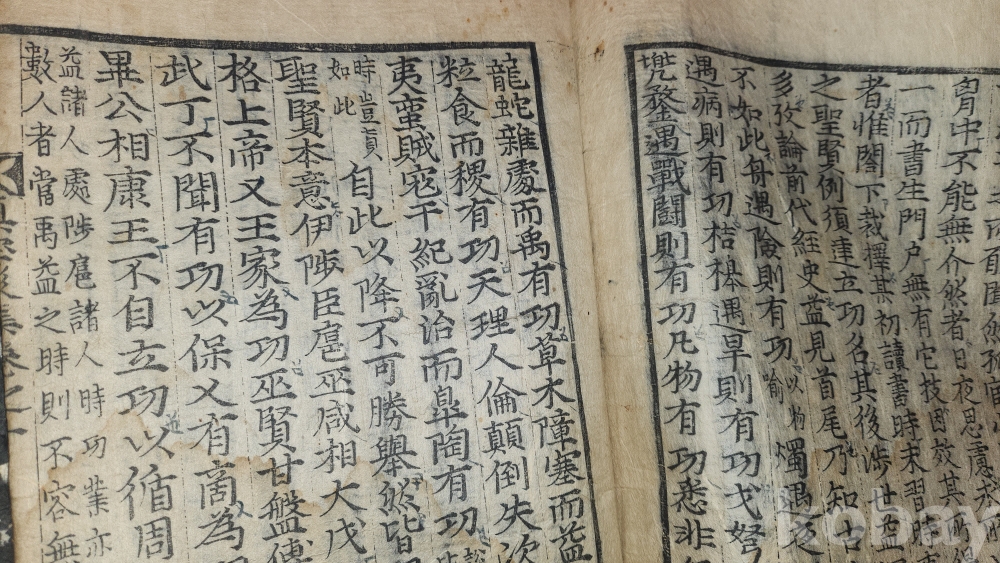 胷中不能無介然者日夜思
一而書生門户無有它技
者惟閤下裁擇其初讀書時未習時
之聖賢例須建立功名其後涉世益
多攷論前代經史益見首尾乃知古
不如此舟遇險則有功喻以物燭遇
遇病則有功桔橰遇旱則有功戈弩
兠鍪遇戰鬪則有功凡物有功悉非
龍蛇雜處而禹有功草木障塞而益
粒食而稷有功天理人倫顛倒失次
夷蠻賊寇干紀亂治而臯陶有功
時豈責如此自此以降不可勝舉然皆
聖賢本意伊陟臣扈巫咸相大戊
格上帝乂王家為功巫賢甘盤傅
武丁不聞有功以保乂有商為
畢公相康王不自立功以循周
益諸人處陟扈諸人時功業亦
數人者當禹益之時則不容無
集卷之一
kobay